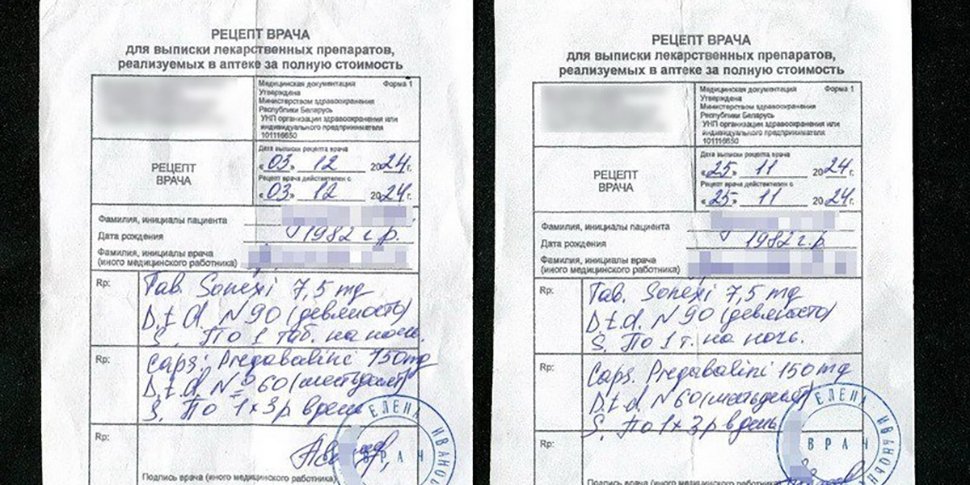 РЕЦЕПТ ВРАЧА
для выписки лекарственных препаратов,
реализуемых в аптеке за полную стоимость
Медицинская документация Форма 1
Утверждена
Министерством здравоохранения
Республики Беларусь
УНП организации здравоохранения или
индивидуального предпринимателя
101116650
РЕЦЕПТ
ВРАЧА
Дата выписки рецепта врача
«03» 12 2024г.
Рецепт врача действителен с
«03» 12 2024г.
Фамилия, инициалы пациента
Дата рождения 1982 г.р.
Фамилия, инициалы врача
(иного медицинского работника)
Rp: Tab. Sonexi 7,5 mg
D.t.d. N 90 (девяносто)
S. По 1 таб. на ночь.
Rp: Caps. Pregabalini 150 mg
D.t.d. N=60 (шестьдесят)
S. По 1×3 р в день
Rp:
Подпись врача (иного медицинского
ЕЛЕНА ИВАНОВ
ВРАЧ
РЕЦЕПТ ВРАЧА
для выписки лекарственных препаратов,
реализуемых в аптеке за полную стоимость
Медицинская документация Форма 1
Утверждена
Министерством здравоохранения
Республики Беларусь
УНП организации здравоохранения или
индивидуального предпринимателя
101116650
РЕЦЕПТ
ВРАЧА
Дата выписки рецепта врача
«25» 11 2024г.
Рецепт врача действителен с
«25» 11 2024г.
Фамилия, инициалы пациента
Дата рождения 1982 г.р.
Фамилия, инициалы врача
(иного медицинского работника)
Rp: Tab. Sonexi 7,5 mg
D.t.d. N 90 (девяносто)
S. По 1 т. на ночь.
Rp: Caps. Pregabalini 150 mg
D.t.d. N 60 (шестьдесят)
S. По 1×3 р в день
Rp:
Подпись врача (иного медицинского
ЕЛЕНА ИВАНОВ
ВРАЧ